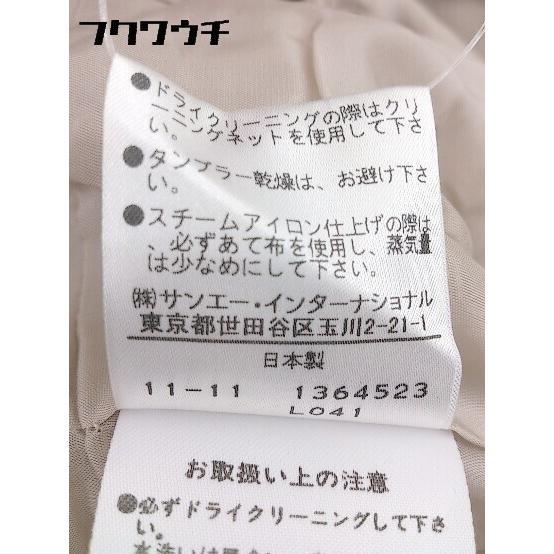 フクワウチ
●ドライクリーニングの際はクリ
ーニングネットを使用して下さ
い。
●タンブラー乾燥は、お避け下さ
い。
●スチームアイロン仕上げの際は
、必ずあて布を使用し、蒸気量
は少なめにして下さい。
(株)サンエー・インターナショナル
東京都世田谷区玉川2-21-1
日本製
11-11 1364523
L041
お取扱い上の注意
●必ずドライクリーニングして下さ
い。
水洗いは